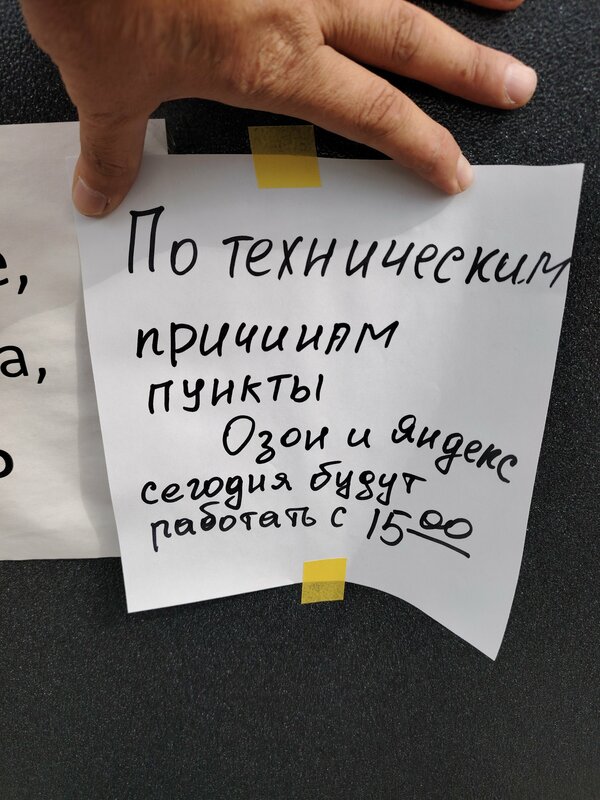 е,
а,
По техническим
причинам
пункты
Озон и Яндекс
сегодня будут
работать с 15 00